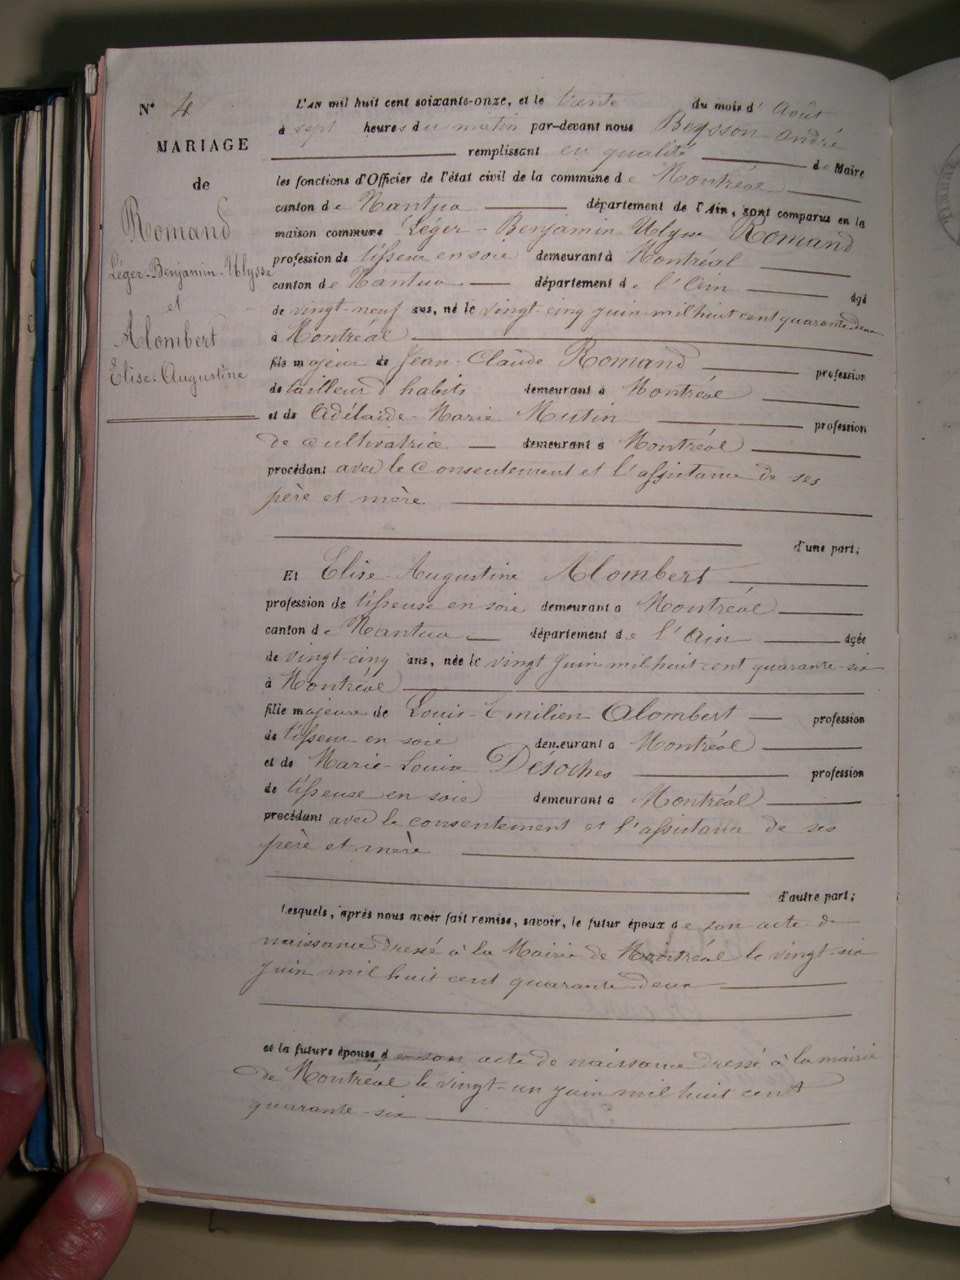 N° 4
MARIAGE
de
Romand
Léger-Benjamin-Ulysse
et
Alombert
Elise-Augustine
L'AN mil huit cent soixante-onze, et le trente du mois d' Août
à sept heures du matin par-devant nous Beysson André
remplissant en qualité de Maire
les fonctions d'Officier de l'état civil de la commune de Montréal
canton de Nantua département de l'Ain, sont comparus en la
maison commune Léger-Benjamin Ulysse Romand
profession de tisseur en soie demeurant à Montréal
canton de Nantua département de l'Ain âgé
de vingt-neuf ans, né le vingt-cinq juin mil huit cent quarante-deux
à Montréal
fils majeur de Jean-Claude Romand profession
de tailleur d'habits demeurant à Montréal
et de Adélaïde-Marie Mutin profession
de cultivatrice demeurant à Montréal
procédant avec le consentement et l'assistance de ses
père et mère
d'une part;
Et Elise-Augustine Alombert
profession de tisseuse en soie demeurant à Montréal
canton de Nantua département de l'Ain âgée
de vingt-cinq ans, née le vingt juin mil huit cent quarante-six
à Montréal
fille majeure de Louis-Emilien Alombert profession
de tisseur en soie demeurant à Montréal
et de Marie-Louise Désoches profession
de tisseuse en soie demeurant à Montréal
procédant avec le consentement et l'assistance de ses
père et mère
d'autre part;
Lesquels, après nous avoir fait remise, savoir, le futur époux de son acte de
naissance dressé à la Mairie de Montréal le vingt-six
juin mil huit cent quarante deux
et la future épouse de son acte de naissance dressé à la mairie
de Montréal le vingt-un juin mil huit cent
quarante-six